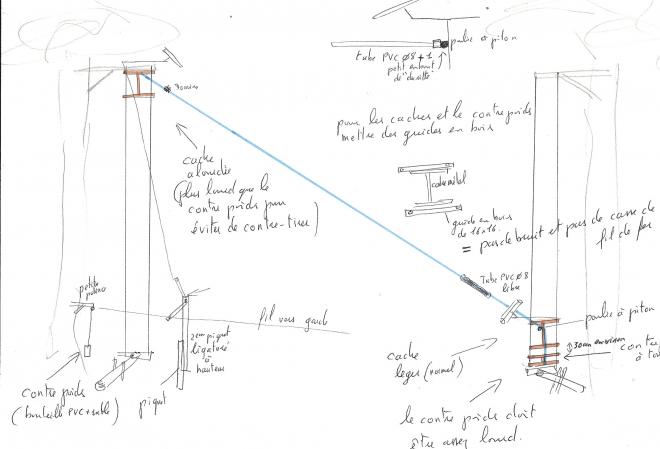 poulie à piton
tube PVC Ø8 + 1
petit autour
de douille
pour les caches et le contre poids
mettre des guides en bois
30 cm
cache
alourdie
(plus lourd que le
contre poids pour
éviter de contre-tirer)
cache métal
guide en bois
de 16x16.
= pas de bruit et pas de casse de
fil de fer
Tube PVC Ø8
libre
petite
potence
fil vers garde
2em piquet
ligaturé
à
hauteur
poulie à piton
30 cm environ
cache
leger (normal)
contre poids
(bouteille PVC + sable)
piquet
le contre poids doit
être assez lourd.